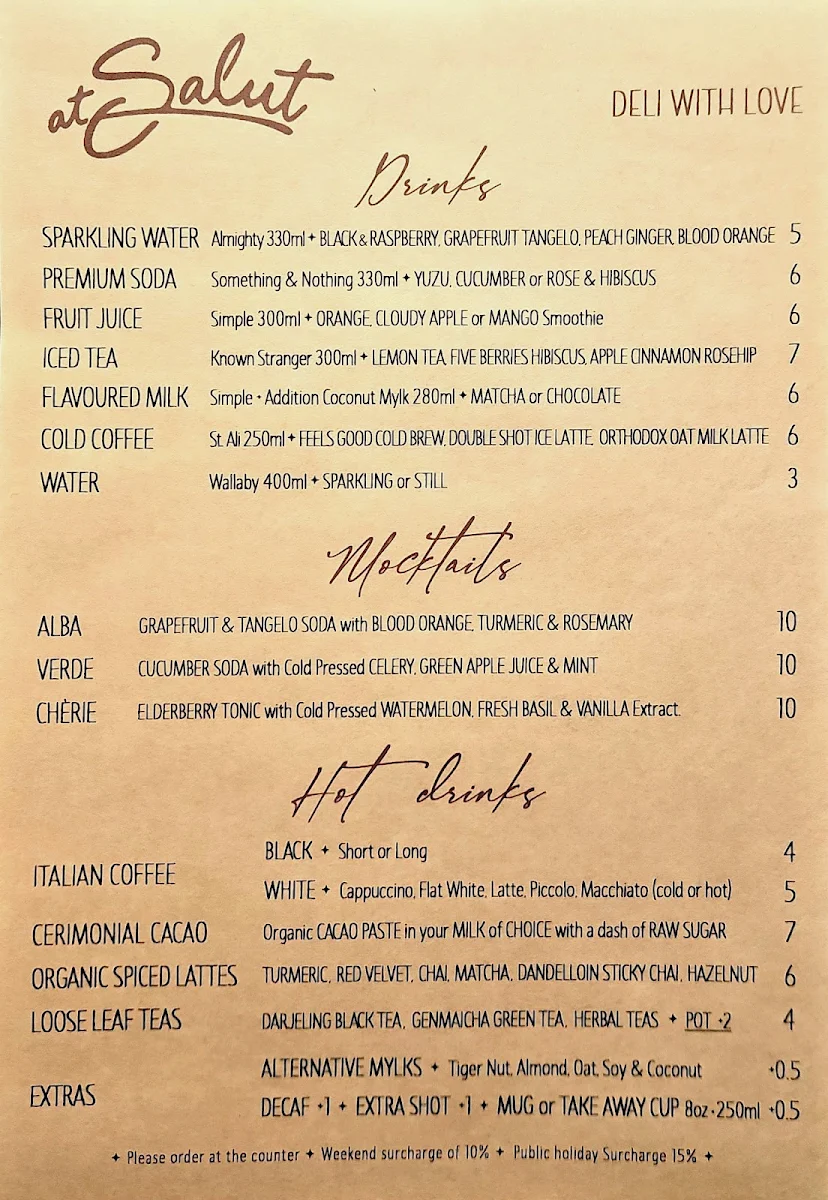 at Salut
DELI WITH LOVE
Drinks
SPARKLING WATER Almighty 330ml + BLACK & RASPBERRY, GRAPEFRUIT TANGELO, PEACH GINGER, BLOOD ORANGE 5
PREMIUM SODA Something & Nothing 330ml + YUZU, CUCUMBER or ROSE & HIBISCUS 6
FRUIT JUICE Simple 300ml + ORANGE, CLOUDY APPLE or MANGO Smoothie 6
ICED TEA Known Stranger 300ml + LEMON TEA, FIVE BERRIES HIBISCUS, APPLE CINNAMON ROSEHIP 7
FLAVOURED MILK Simple + Addition Coconut Mylk 280ml + MATCHA or CHOCOLATE 6
COLD COFFEE St. Ali 250ml + FEELS GOOD COLD BREW, DOUBLE SHOT ICE LATTE, ORTHODOX OAT MILK LATTE 6
WATER Wallaby 400ml + SPARKLING or STILL 3
Mocktails
ALBA GRAPEFRUIT & TANGELO SODA with BLOOD ORANGE, TURMERIC & ROSEMARY 10
VERDE CUCUMBER SODA with Cold Pressed CELERY, GREEN APPLE JUICE & MINT 10
CHÈRIE ELDERBERRY TONIC with Cold Pressed WATERMELON, FRESH BASIL & VANILLA Extract. 10
Hot drinks
ITALIAN COFFEE
BLACK + Short or Long 4
WHITE + Cappuccino, Flat White, Latte, Piccolo, Macchiato (cold or hot) 5
CERIMONIAL CACAO Organic CACAO PASTE in your MILK of CHOICE with a dash of RAW SUGAR 7
ORGANIC SPICED LATTES TURMERIC, RED VELVET, CHAI, MATCHA, DANDELLOIN STICKY CHAI, HAZELNUT 6
LOOSE LEAF TEAS DARJELING BLACK TEA, GENMAICHA GREEN TEA, HERBAL TEAS + POT +2 4
EXTRAS
ALTERNATIVE MYLKS + Tiger Nut, Almond, Oat, Soy & Coconut +0.5
DECAF +1 + EXTRA SHOT +1 + MUG or TAKE AWAY CUP 8oz·250ml +0.5
+ Please order at the counter + Weekend surcharge of 10% + Public holiday Surcharge 15% +